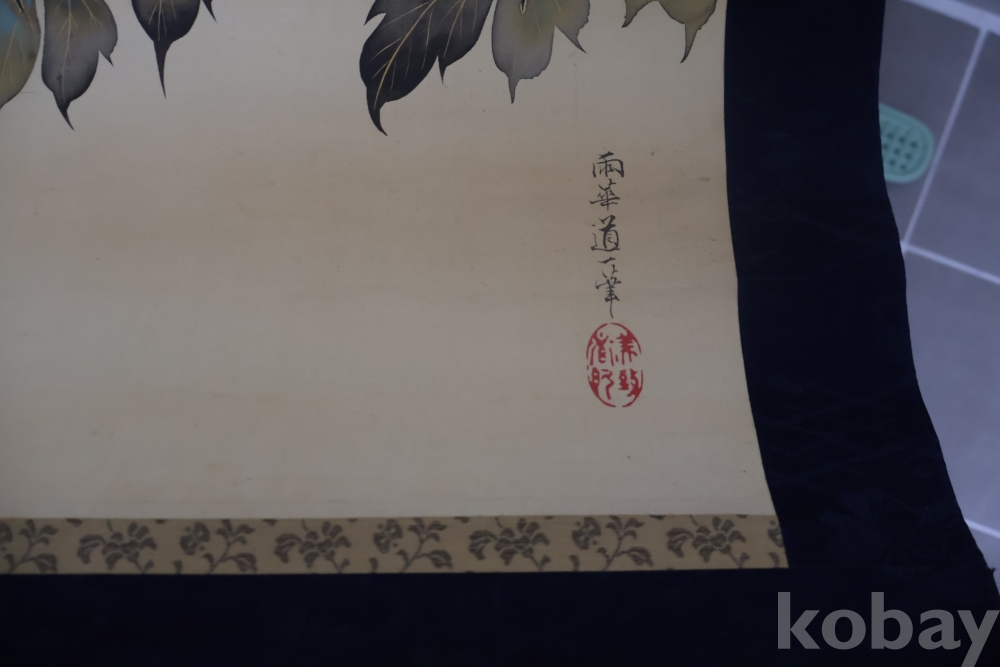 雨華道一筆
kobay